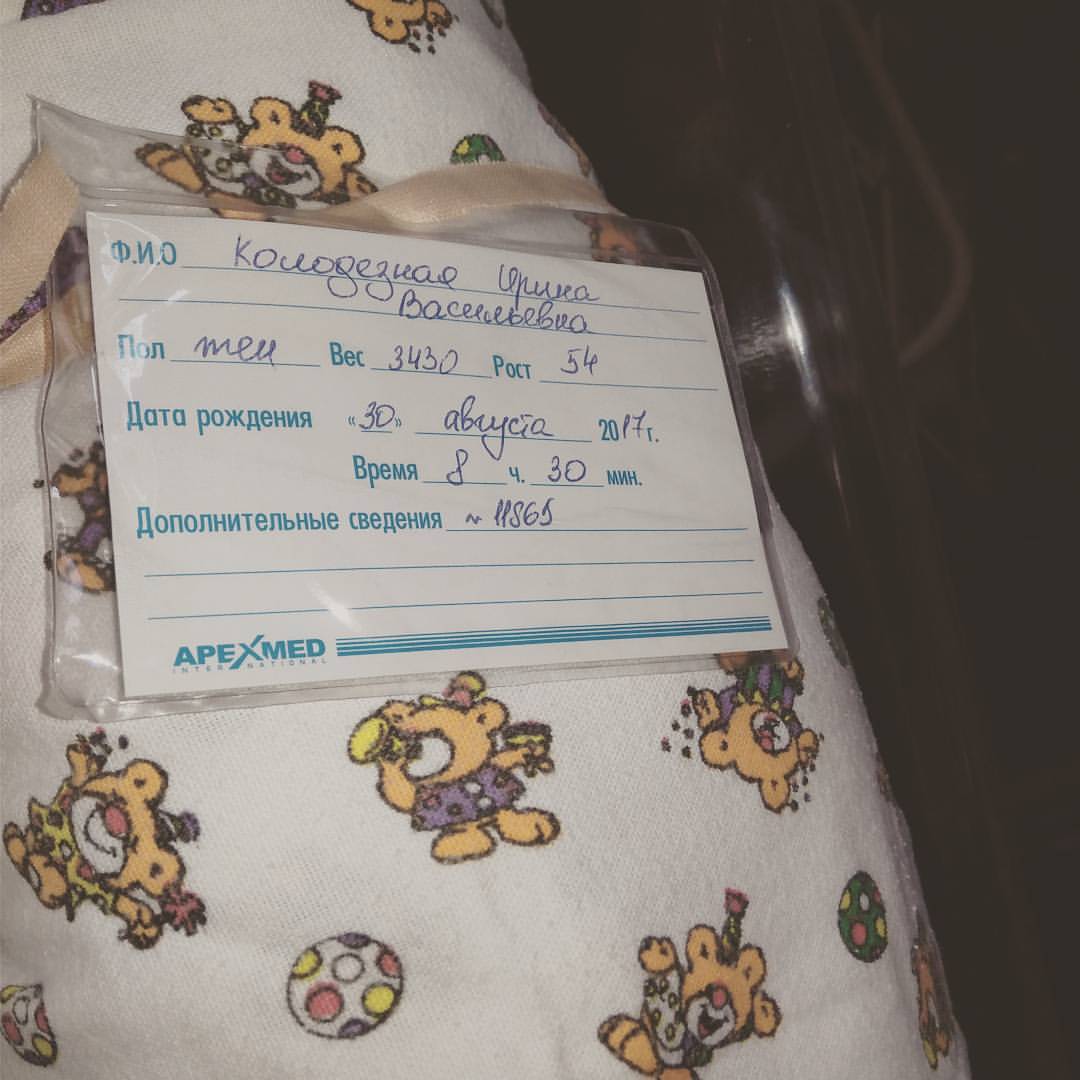 Ф.И.О Колодезная Ирина
Васильевна
Пол жен Вес 3430 Рост 54
Дата рождения «30» августа 2017г.
Время 8 ч. 30 мин.
Дополнительные сведения № 11865
APEXMED
INTERNATIONAL